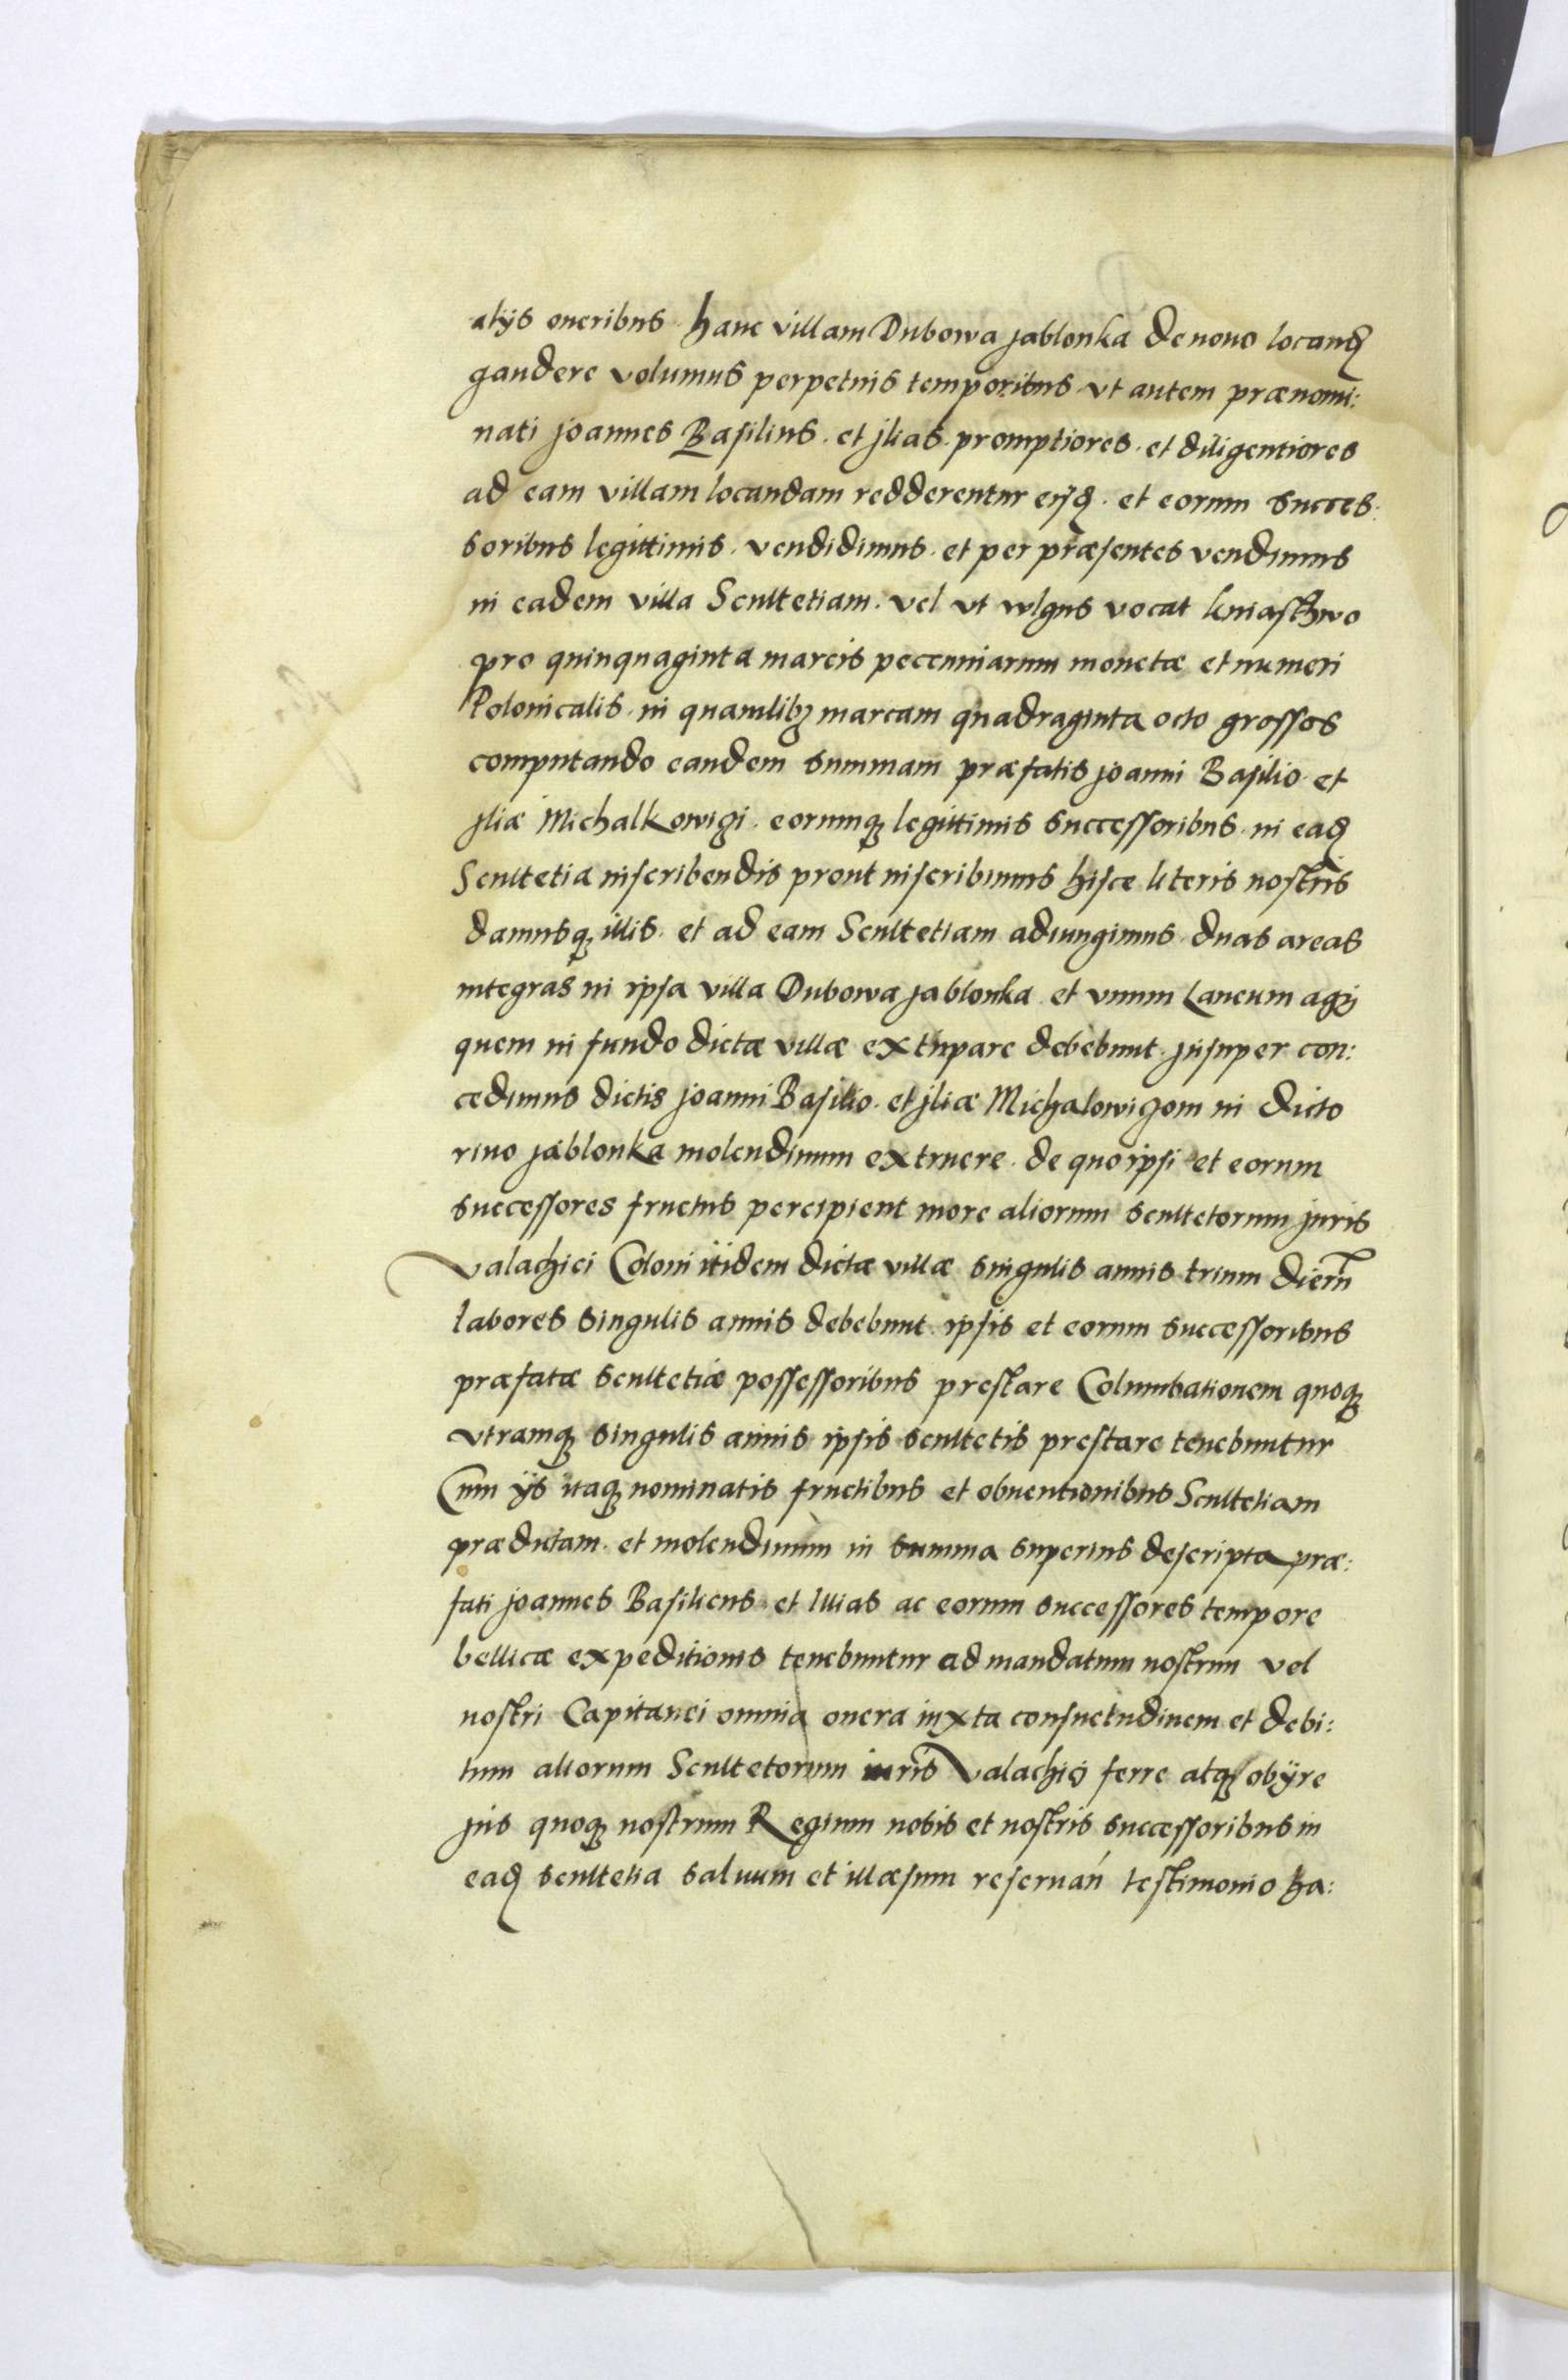 alÿs oneribus hanc villam Dubowa Jablonka de novo locand
gaudere volumus perpetuis temporibus vt autem prænomi:
nati Joannes Basilius. et Jlias. promptiores. et diligentiores
ad eam villam locandam redderentur eisd. et eorum succes:
soribus legittimis. vendidimus. et per præsentes vendimus
in eadem villa Scultetiam. vel vt wlgus vocat kniasthwo
pro quinquaginta marcis pecunniarum monetæ et numeri
Polonicalis. in quamlibꝫ marcam quadraginta octo grossos
computando eandem summam præfatis Joanni Basilio et
Jliæ Michalkowigi. eorumqꝫ legittimis successoribus in ead
Scultetia inscribendis prout inscribimus hisce literis nostris
damusqꝫ illis. et ad eam Scultetiam adiungimus duas areas
integras in ipsa villa Dubowa Jablonka et vnum Laneum agri
quem in fundo dictæ villæ extirpare debebunt. Jnsuper con:
cedimus dictis Joanni Basilio. et Jliæ Michalowigom in dicto
riuo Jablonka molendinum extruere. de quo ipsi et eorum
successores fructus percipient more aliorum scultetorum juris
Valachici Coloni itidem dictæ villæ singulis annis trium dierū
labores singulis annis debebunt ipsis et eorum successoribus
præfatæ scultetiæ possessoribus prestare Columbationem quoqꝫ
vtramqꝫ singulis annis ipsis scultetis prestare tenebuntur
Cum ÿs itaqꝫ nominatis fructibus et obuentionibus Scultetiam
prædictam. et molendinum in summa superius descripta præ:
fati Joannes Basilieus et Illias ac eorum successores tempore
bellicæ expeditionis tenebuntur ad mandatum nostrum vel
nostri Capitanei omnia onera iuxta consuetudinem et debi:
tum aliorum Scultetorum iuris Valachici ferre atqꝫ obÿre
jus quoqꝫ nostrum Regium nobis et nostris successoribus in
ead scultetia saluum et illæsum reseruan̄ testimonio ha: